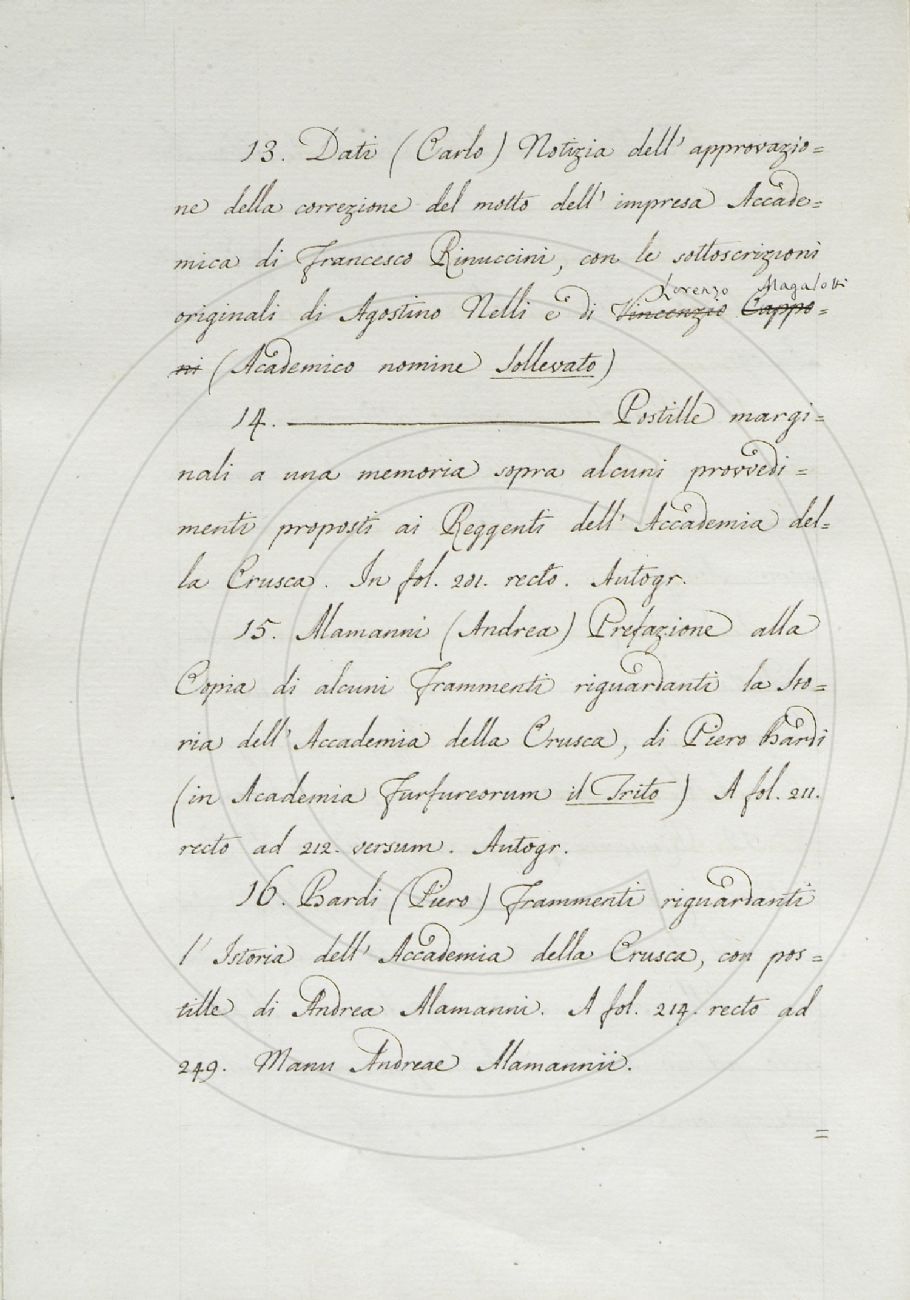 13. Dati (Carlo) Notizia dell' approvazio=
ne della correzione del motto dell' impresa Accade=
mica di Francesco Rinuccini, con le sottoscrizioni
Lorenzo Magalotti
originali di Agostino Nelli e di Vincenzio Cappo=
ni (Academico nomine Sollevato)
14. ——————— Postille margi=
nali a una memoria sopra alcuni provvedi=
menti proposti ai Reggenti dell' Accademia del=
la Crusca. In fol. 201. recto. Autogr.
15. Alamanni (Andrea) Prefazione alla
Copia di alcuni Frammenti riguardanti la Sto=
ria dell' Accademia della Crusca, di Piero Bardi
(in Academia Furfureorum il Trito) A fol. 211.
recto ad 212. versum. Autogr.
16. Bardi (Piero) Frammenti riguardanti
l' Istoria dell' Accademia della Crusca, con pos=
tille di Andrea Alamanni. A fol. 214. recto ad
249. Manu Andreae Alamannii.
=